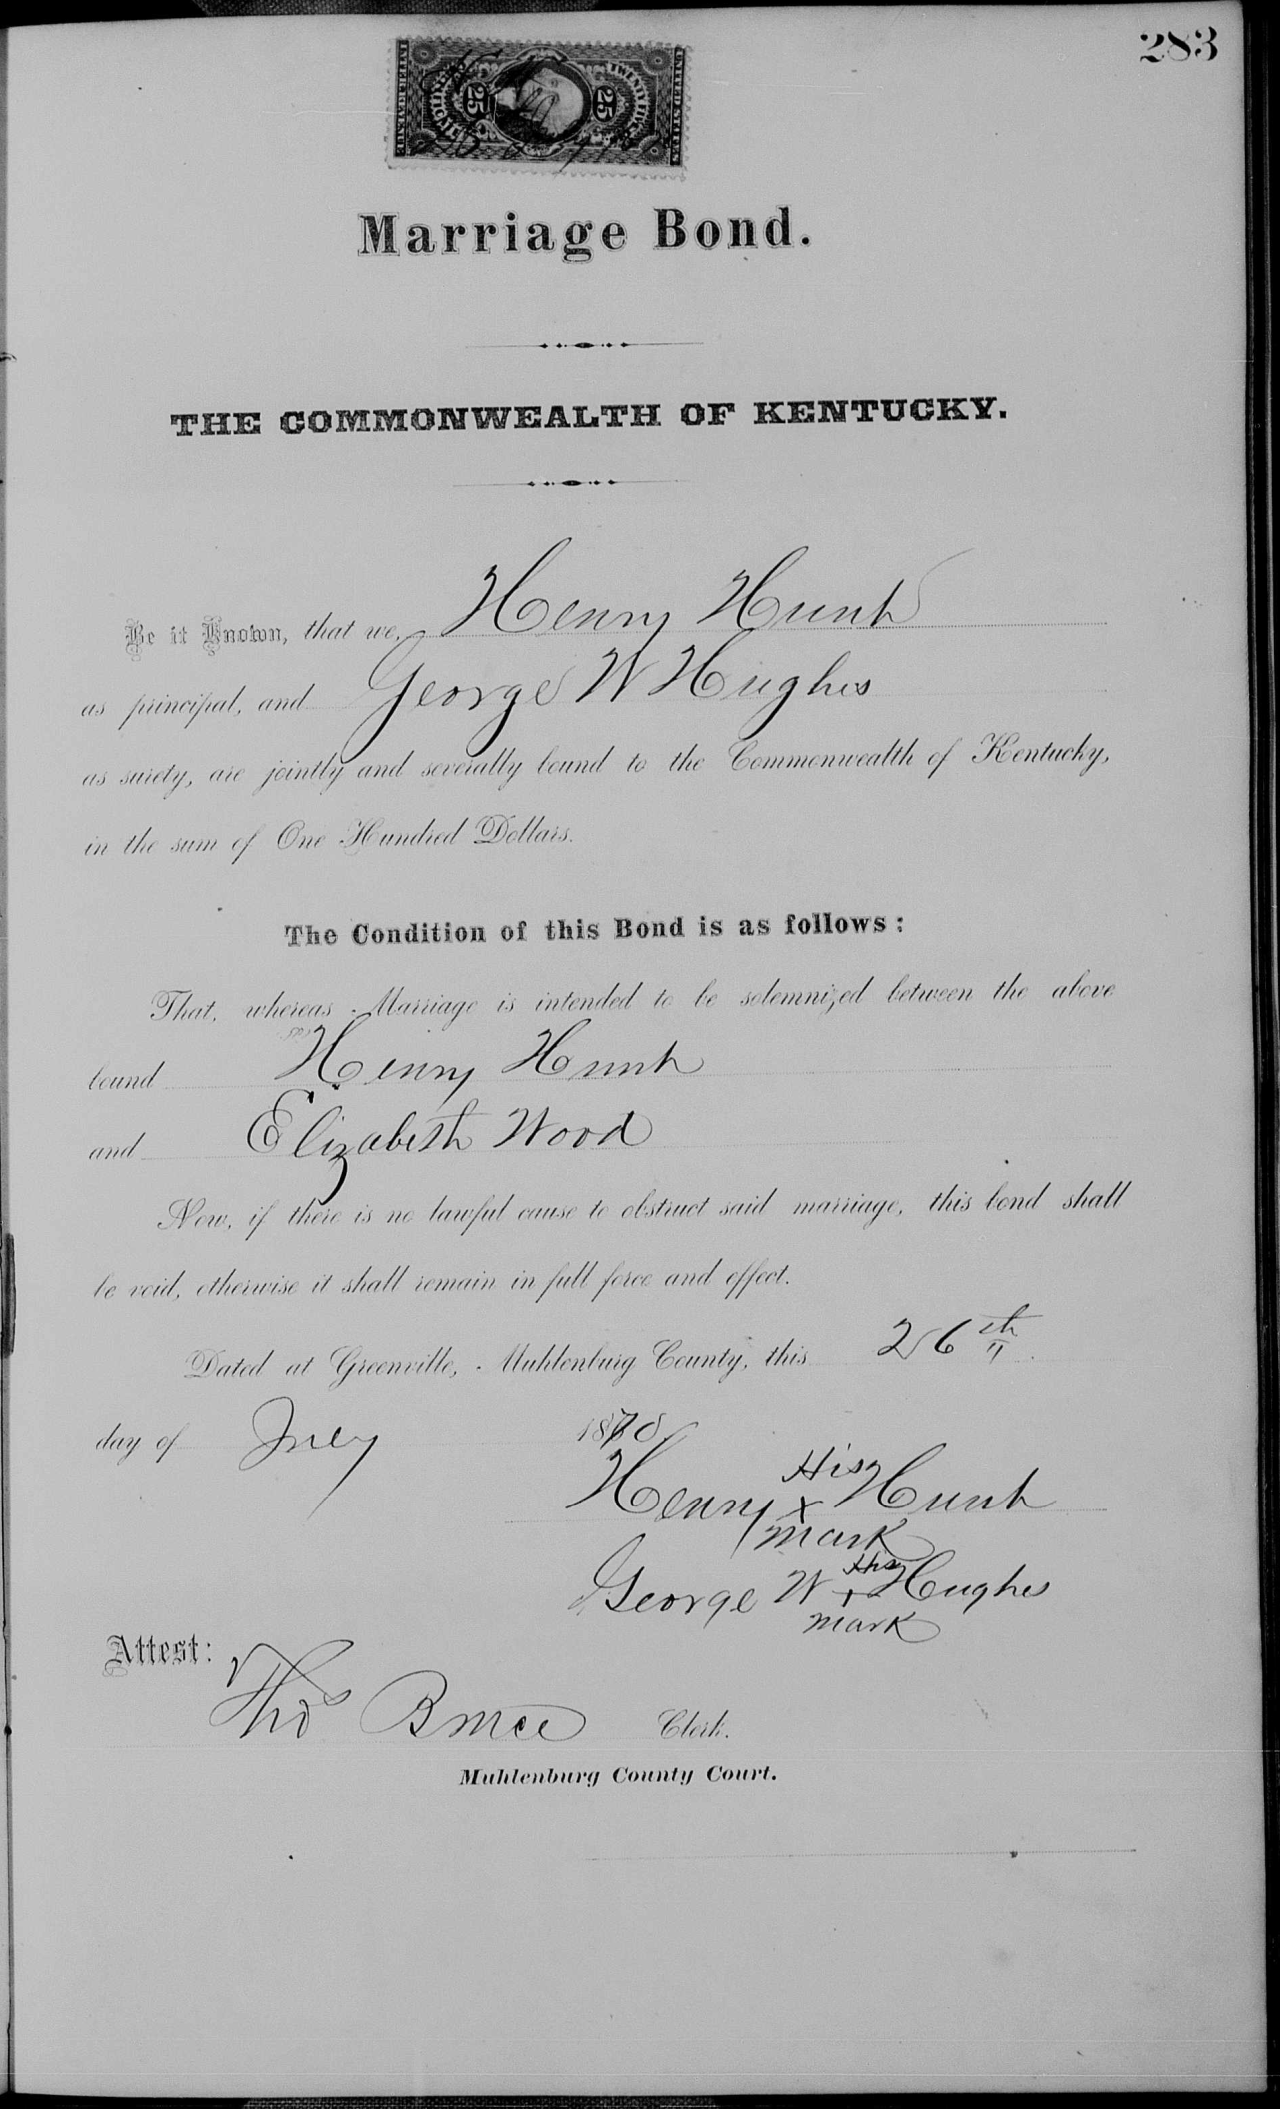 283
UNITED STATES
TWENTY FIVE
25
25
INTER. REVENUE
Marriage Bond.
THE COMMONWEALTH OF KENTUCKY.
Be it Known, that we, Henry Hunt
as principal, and George W Hughes
as surety, are jointly and severally bound to the Commonwealth of Kentucky,
in the sum of One Hundred Dollars.
The Condition of this Bond is as follows:
That, whereas Marriage is intended to be solemnized between the above
bound Henry Hunt
and Elizabeth Wood
Now, if there is no lawful cause to obstruct said marriage, this bond shall
be void, otherwise it shall remain in full force and effect.
Dated at Greenville, Muhlenburg County, this 26th
day of July 1870
His
Henry x Hunt
mark
His
George W + Hughes
mark
Attest:
Thos Bruce Clerk.
Muhlenburg County Court.